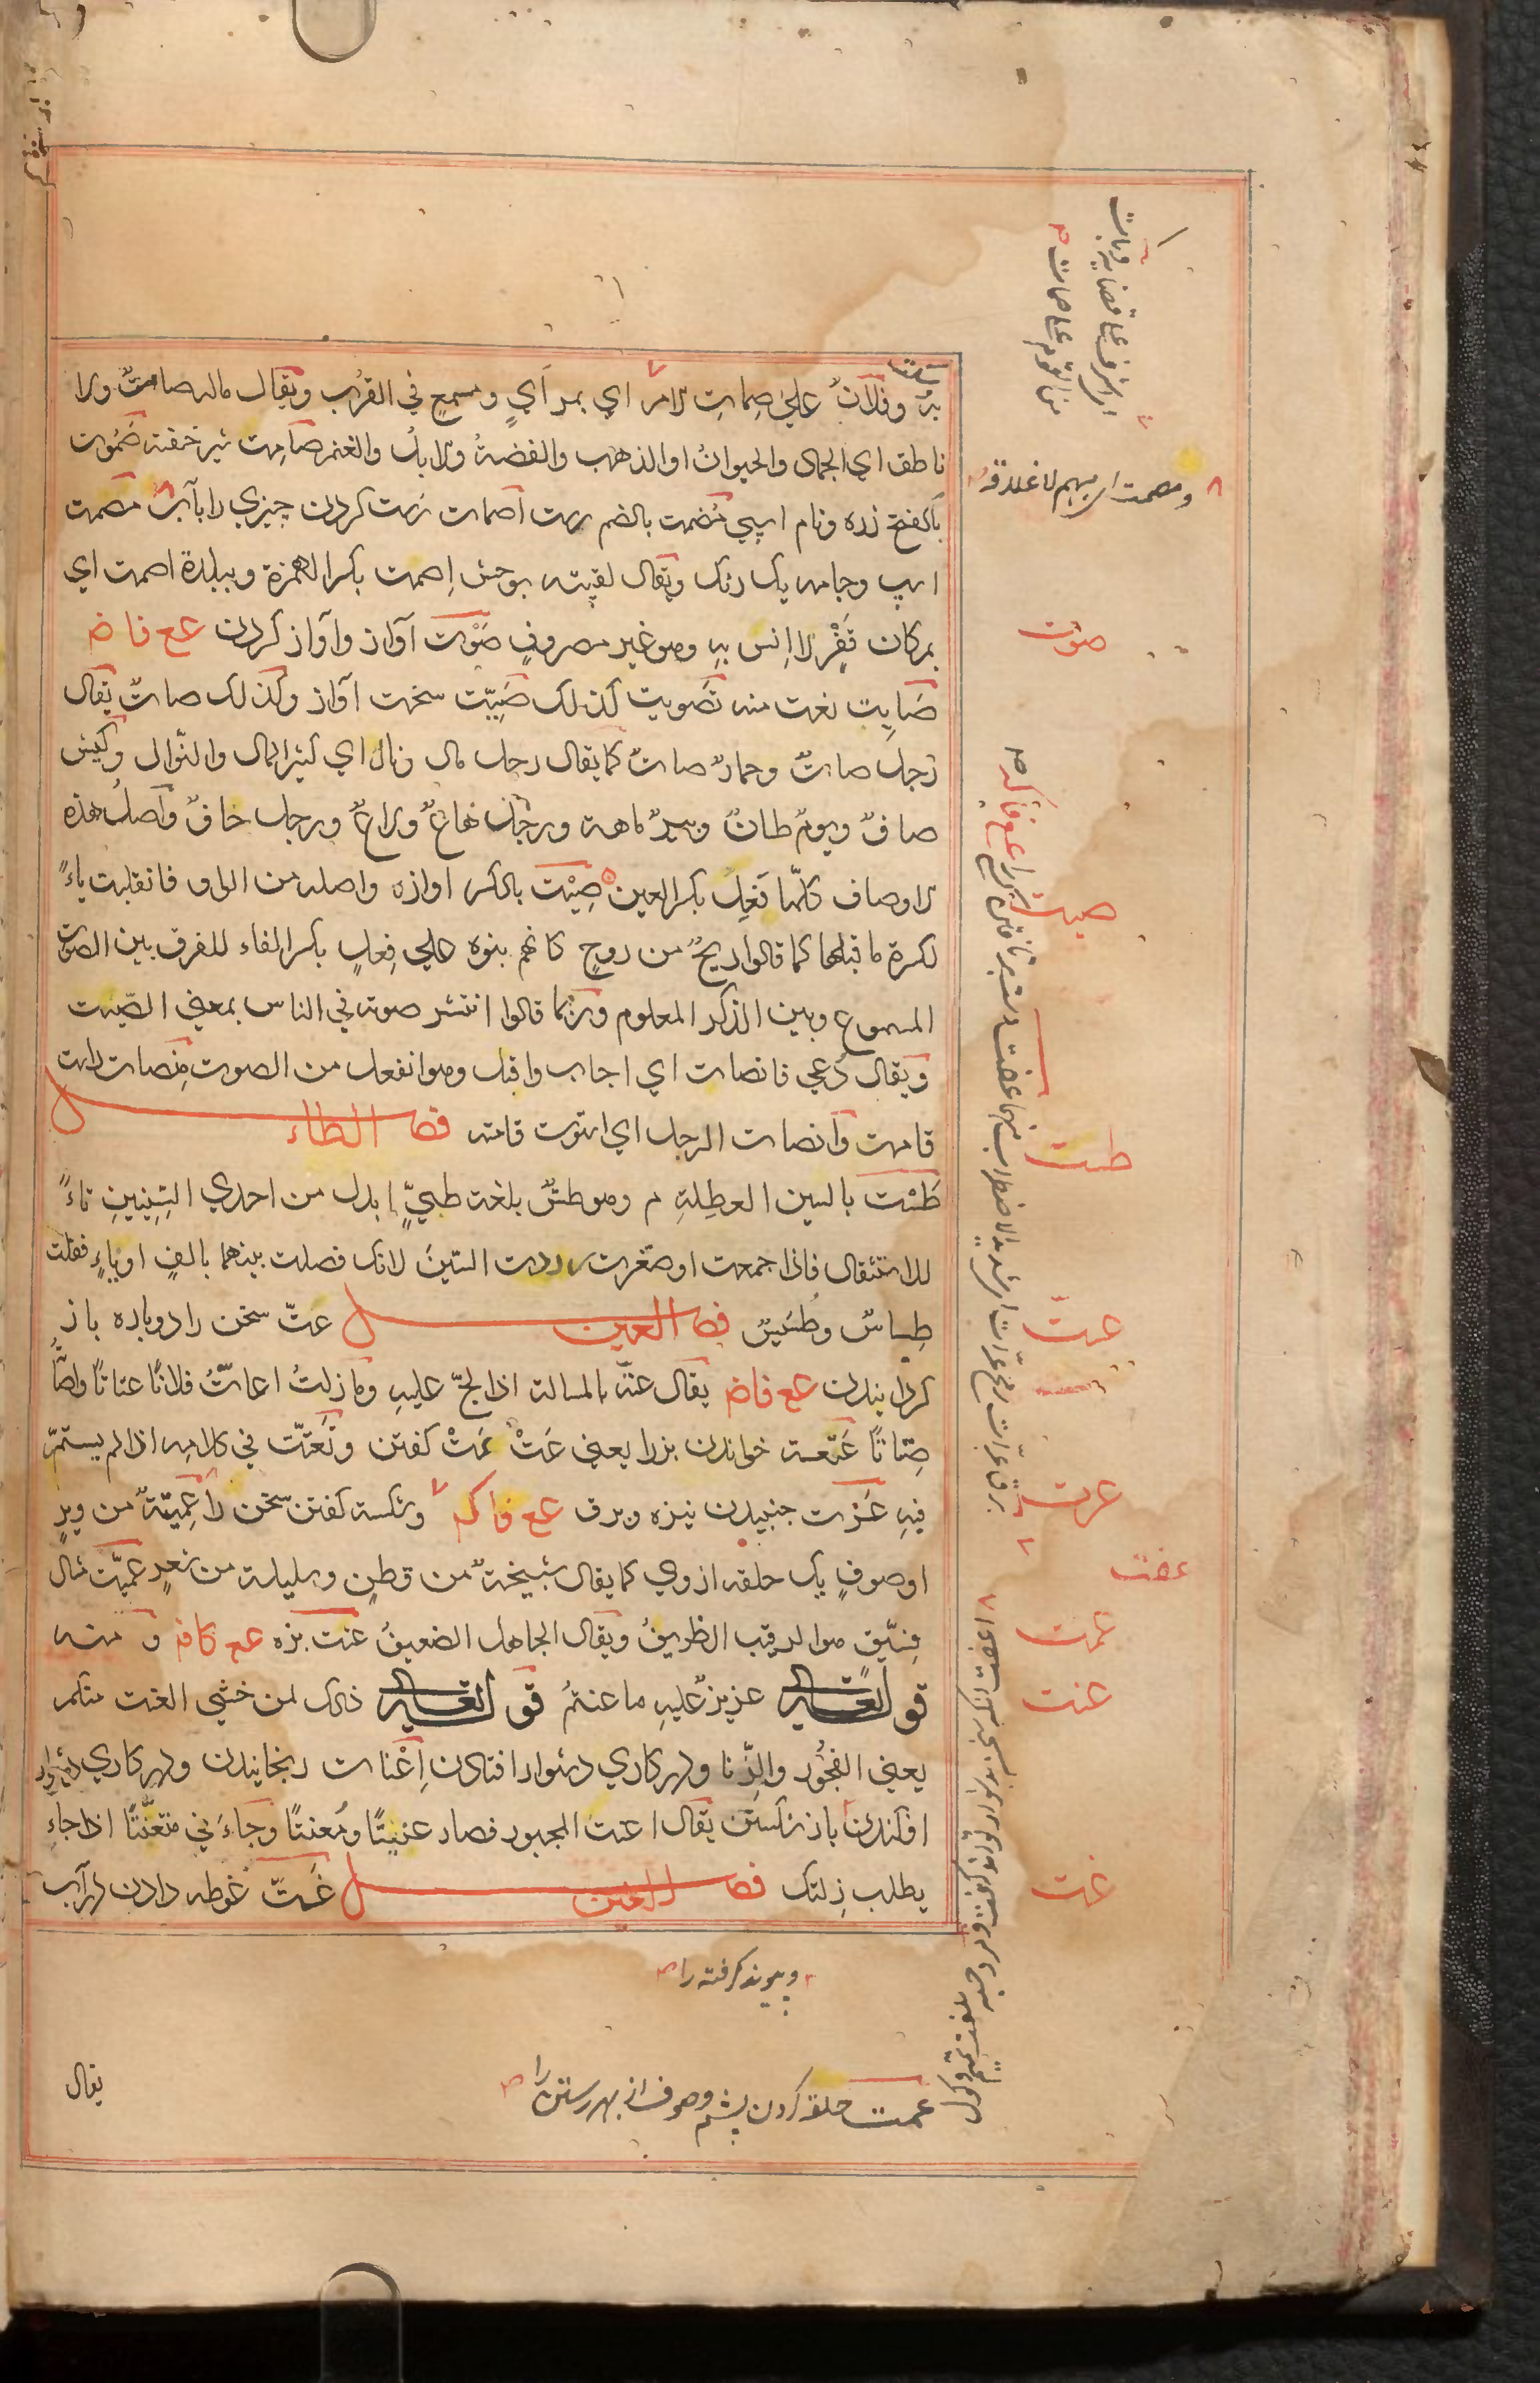 بدٌ وفلانٌ علي صِماتِ الامر اي بمرآيٍ ومسمعٍ في القرب ويقال ماله صامتٌ ولا
ناطق اي الجماد والحيوان او الذهب والفضة والابل والغنم صامِت شير خفته صَمُوت
بالفتح زره ونام اسپي مُصْمَت بالضم اصمات كردن چيزي را مصمت
اسپ وجامه يك رنگ ويقال لقيته بوحش اِصمت بكسر الهمزة وببلدة اصمت اي
بمكان قَفْرٍ لا انس به وهو غير مصروفٍ صَوْت آواز وآواز كردن عع فاض
صَايِت نعت منه تَصويت كذلك صَيِّت سخت آواز وكذلك صاتٌ يقال
رجلٌ صاتٌ وحمارٌ صاتٌ كما يقال رجل مال ونال اي كثير المال والنّوال وكبش
صافٌ ويومٌ طانٌ وبيرٌ ماهة ورجل هاعٌ ولاعٌ ورجل خافٌ واصلُ هذه
الاوصاف كلّها فَعِلٌ بكسر العين صِيْت بالكسر اوازه واصله من الواو فانقلبت ياءً
لكسرة ما قبلها كما قالوا ريحٌ من روحٍ كانهم بنوه علي فِعلٍ بكسر الفاء للفرق بين الصوت
المسموع وبين الذكر المعلوم وربما قالوا انتشر صوته في الناس بمعني الصّيت
ويقال دُعي فانصات اي اجاب واقبل وهو انفعل من الصوت مُنصات راست
قامت وانصات الرجل اي استوت قامته فصل الطاء
طَسْت بالسين العطِلةِ م وهو طسٌّ بلغة طيٍّ ابدل من احدي السِّينينِ تاءً
للاستثقال فاذا جمعت او صغّرت رددت السّين لانك فصلت بينهما بالفٍ او ياءٍ فقلت
طِساسٌ وطُسَيسٌ فصل العين عتّ سخن را دوباره باز
گردانيدن عع فاض يقال عتّه بالمسالة اذا لحّ عليهِ وما زلتُ اعاتُّ فلانًا عتاتًا واصاتُّه
صِتاتًا عَتعتة خواندن بز را يعني عَتْ عَتْ گفتن وتَعتّت في كلامه اذا لم يستمرّ
فيهِ عَرْت جنبيدن نيزه وبرق عع فاكم وشكسته گفتن سخن را عَمِيتَةٌ من وبرٍ
او صوفٍ يك حلقه ازوي كما يقال سَبيخةٌ من قطنٍ وسليلة من شعرٍ عِمِّيت مثال
فِسِّيق هو الرقيب الظريفُ ويقال الجاهل الضعيفُ عَنَت بزه عع كافم ومنه
قوله تعالي عزيزٌ عليهِ ما عنتمُ قوله تعالي ذلك لمن خشي العنت منكم
يعني الفجُور والزّنا ودر كاري دشوار افتادن اِعْنات رنجانيدن ودر كاري دشوار
افكندن باز شكستن يقال اعنت المجبور فصار عنِيتًا ومُعنتًا وجاءَني متعنّتًا اذا جاءِ
يطلب زِلتك فصل الغين غَتّ غوطه دادن در آب
ومصمت اي مبهم لا غلاقه
صوت
صيت
طست
عت
عرت
عفت
عمت
عنت
غت
وپيوند گرفته را
عمت حلقه كردن پشم وصوف از بهر رستن را
يقال